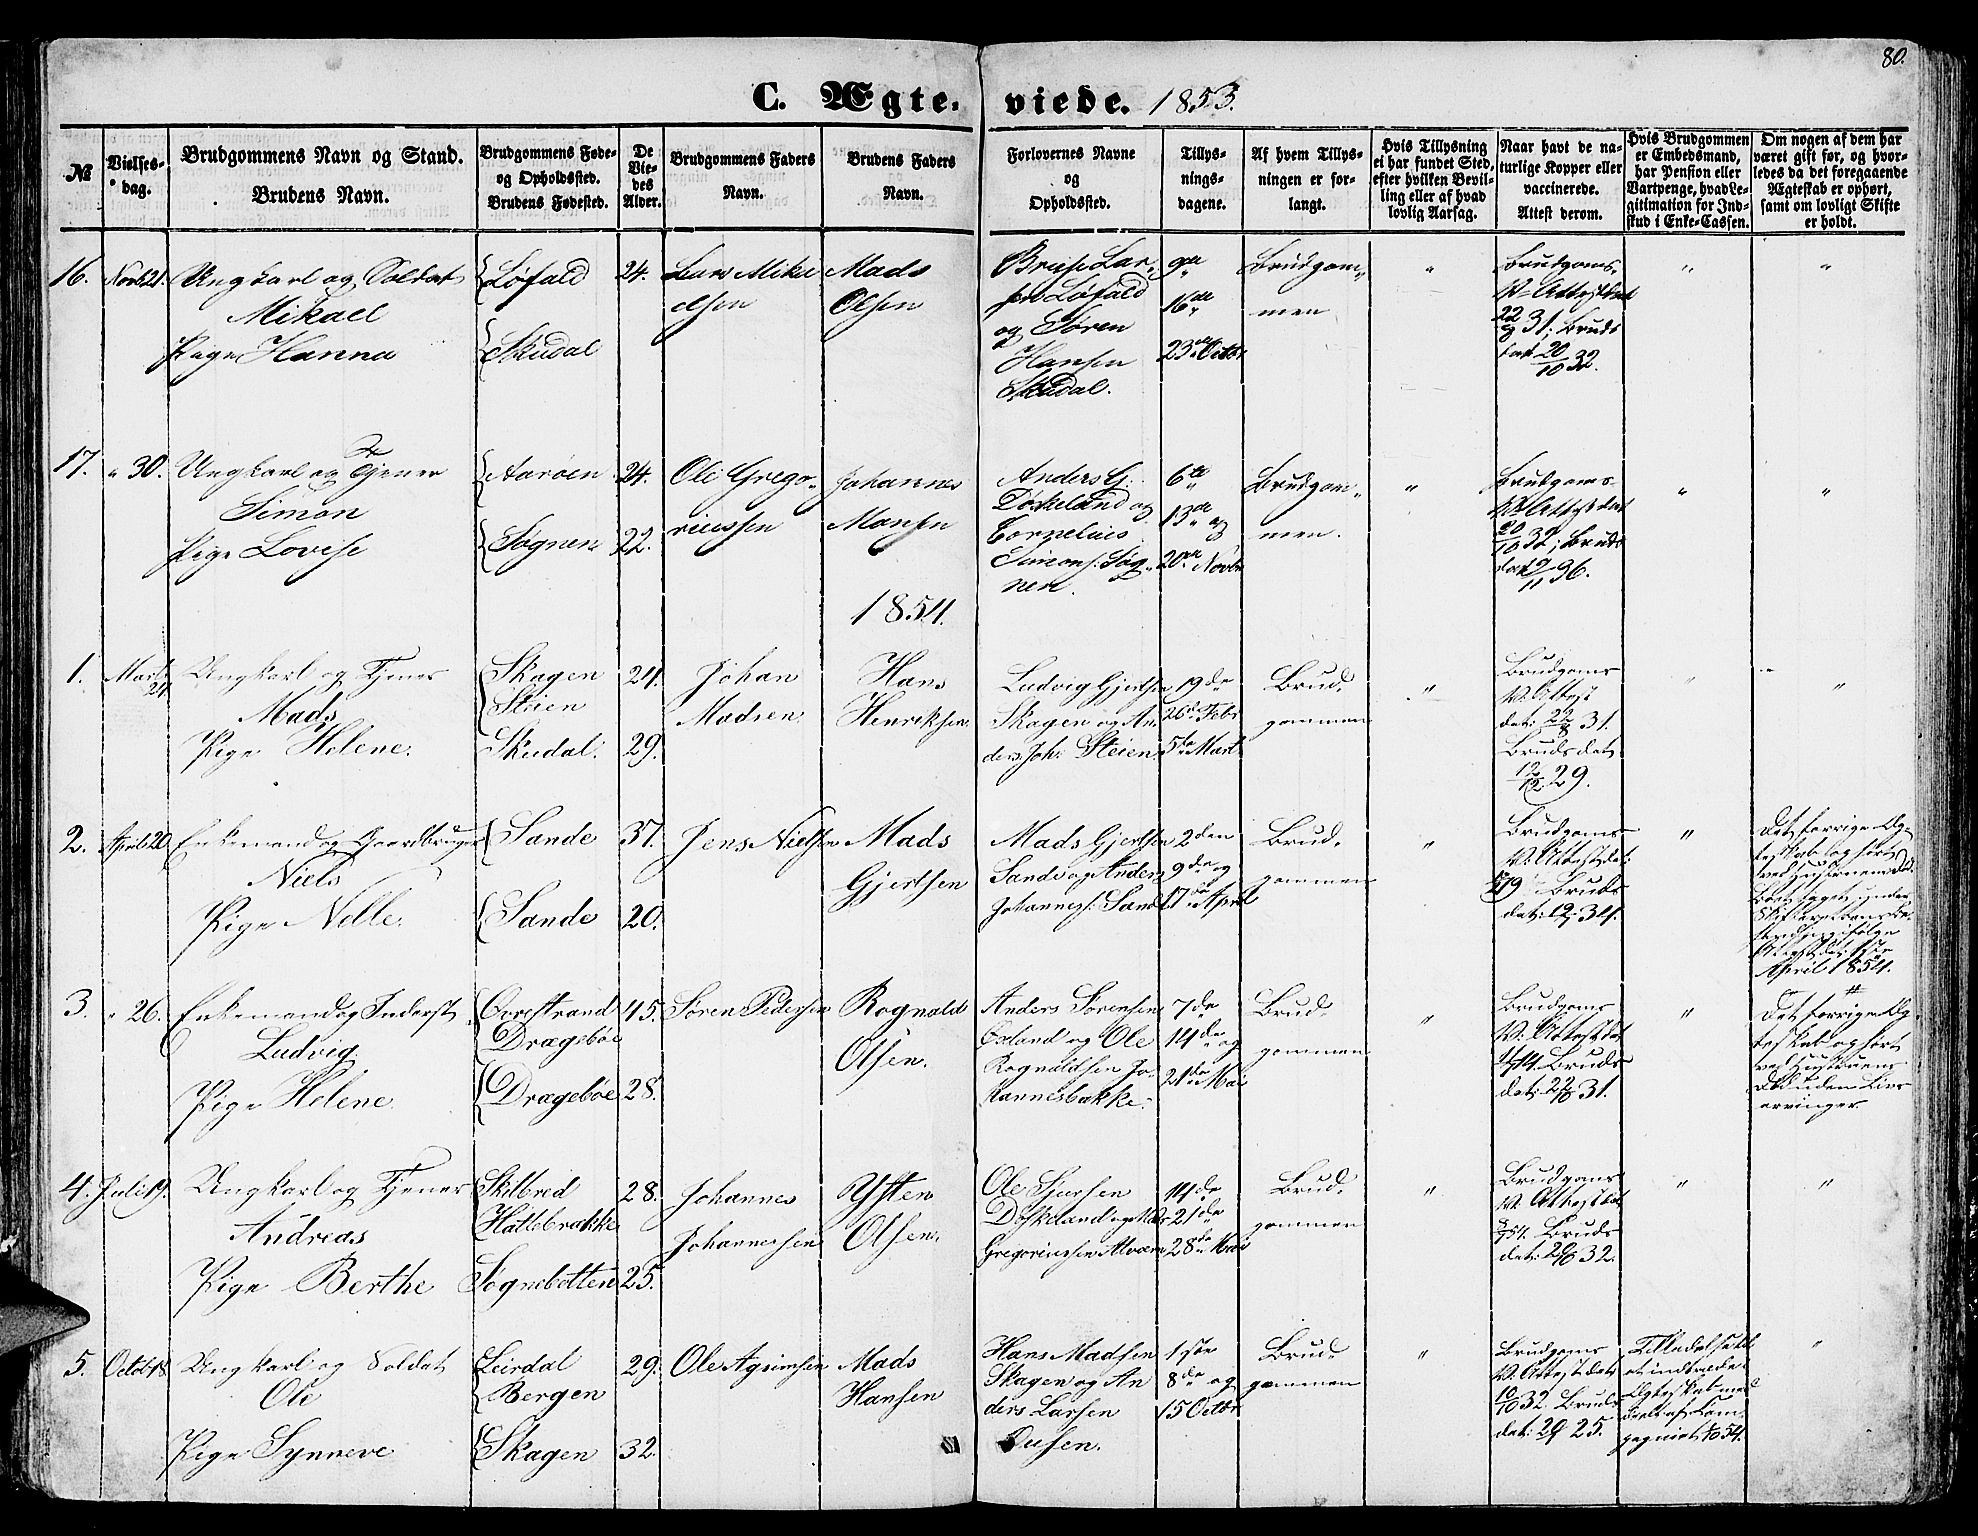 80.
C. Ægte- viede. 1853.
№
Vielses-
dag.
Brudgommens Navn og Stand.
Brudens Navn.
Brudgommens Føde-
og Opholdssted.
Brudens Fødested.
De
Vie-
des
Alder.
Brudgommens Faders
Navn.
Brudens Faders
Navn.
Forlovernes Navne
og
Opholdssted.
Tillys-
nings-
dagene.
Af hvem Tillys-
ningen er for-
langt.
Hvis Tillysning
ei har fundet Sted,
efter hvilken Bevil-
ling eller af hvad
lovlig Aarsag.
Naar havt de na-
turlige Kopper eller
vaccinerede.
Attest derom.
Hvis Brudgommen
er Embedsmand,
har Pension eller
Vartpenge, hvad Le-
gitimation for Ind-
skud i Enke-Cassen.
Om nogen af dem har
været gift før, og hvor-
ledes da det foregaaende
Ægteskab er ophørt,
samt om lovligt Skifte
er holdt.
16.
Novb 21.
Ungkarl og Soldat
Mikael
Pige Hanna
Løfald
Skudal
24.
Lars Mika
elsen
Mads
Olsen
Lar-
sen Løfald
og Søren
Hansen
Skudal.
9de
16de
23de Octbr
Brudgom-
men
"
Brudgoms-
V. Attest dat
22/8 31; Bruds
dat 20/10 32.
"
"
17.
" 30.
Ungkarl og Tjener
Simon
Pige Lovise
Aarøen
Søgnen
24.
22.
Ole Grego-
riussen
Johannes
Monsen
Anders G.
Døskeland og
Cornelius
Simons. Søg-
nen.
6te
13de og
20de Novbr
Brudgom-
men.
"
Brudgoms-
V. Attest dat
20/10 32; Bruds
dat 9/11 36.
"
"
1854.
1.
Marts
24
Ungkarl og Tjener
Mads
Pige Helene.
Skagen
Steien
Skudal.
24.
29.
Johan
Madsen
Hans
Henriksen
Ludvig Gjertsen
Skagen og An-
ders Joh: Steien
19de
26de Febr
5te Mart
Brud-
gommen
"
Brudgoms
V. Attest
dat: 22/8 31.
Bruds dat
12/12 29.
"
"
2.
April 20
Enkemand og Gaardbruger
Niels
Pige Nelle.
Sande
Sande
37.
20.
Jens Nielsen
Mads
Gjertsen
Mads Gjertsen
Sande og Anders
Johannes. Sande
2den
9de og
17de April
Brud-
gommen
"
Brudgoms
V. Attest dat:
Bruds
"
Det forrige Æg-
teskab ophørt
ved Hustruens Død
April 1854.
3.
" 26.
Enkemand og Inderst
Ludvig
Pige Helene
Ovrestrand
Drægebøe
Drægebøe
45.
28.
Søren Pedersen
Rognald
Olsen.
Anders Sørensen
Oxland og Ole
Rognaldsen Jo-
hannesbakke.
7de
14de og
21de Mai
Brud-
gommen
"
Brudgoms
V. Attest dat
Bruds
dat: 22/8 31.
"
Det forrige Æg-
teskab ophørt
ved Hustruens
Død uden Livs
arvinger.
4.
Juli 19.
Ungkarl og Tjener
Andreas
Pige Berthe
Skilbred
Hattebrække
Søgnebotten
28.
25.
Johannes
Johannessen
Østen
Olsen.
Ole Sjursen
Døskeland og Mads
Gregoriussen Alværn
14de
21de
28de Mai
Brud-
gommen
"
Brudgoms
V. Attest dat
Bruds
"
"
5.
Octob 18.
Ungkarl og Soldat
Ole
Pige Synneve
Leirdal
Bergen
Skagen
29.
32.
Ole Agrimsen
Mads
Hansen
Hans Madsen
Skagen og An
ders Larsen
Ousen.
1ste
8de og
15 Octbr
Brud-
gommen
"
Brudgoms
V. Attest dat
19/10 32. Bruds
Tilladelse til
at indtræde i
Ægteskab med
deelt af Com-
pagniet 54.
"